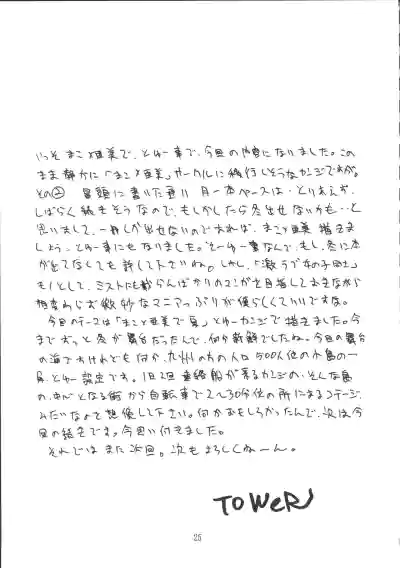 いっそ まこ×亜美で、とゆー事で、今回の内容になりました。この
まま静かに「まこ×亜美」サークルに移行しそうなカンジですが。
その② 冒頭に書いた通り 月一本ペースは、とりあえず、
しばらく続きそうなので、もしかしたら冬出せないかも…と
思いまして、一冊しか出せないのであれば、まこ×亜美 描きま
しょう、とゆー事にもなりました。そーゆー事なんで、もし、冬に本
が出てなくても許して下さいね。しかし、「激ラブ女の子同士」
モノとして、ミストにも載らんばかりのマンガを目指しておきながら
相変わらず微妙なマニアっぷりが僕らしくていいですな。
今回のテーマは「まこ×亜美で夏」とゆーカンジで描きました。今
までずっと冬が舞台だったんで、何か新鮮でしたね。今回の舞台
の海ですけれども何か、九州の方の人口500人位の小島の一
角、とゆー設定です。1日2回 連絡船が来るカンジの、そんな島
の、中心となる街から自転車で2〜30分位の所にあるコテージ、
みたいなよーで想像して下さい。何かおもしろかったんで、次は今
回の続きです。今思い付きました。
それではまた次回。次もよろしくねーん。
TOWER
25